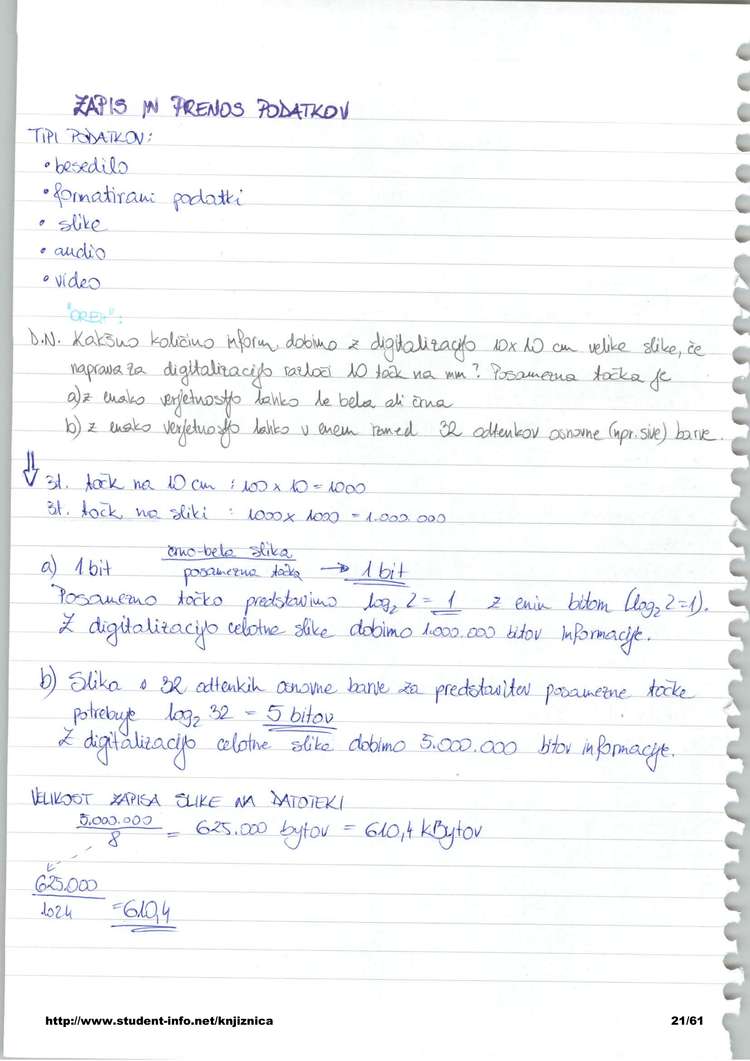 ZAPIS IN PRENOS PODATKOV
TIPI PODATKOV:
• besedilo
• formatirani podatki
• slike
• audio
• video
"OREH":
D.N. Kakšno količino inform. dobimo z digitalizacijo 10x10 cm velike slike, če
naprava za digitalizacijo razloči 10 točk na mm? Posamezna točka je
a) z enako verjetnostjo lahko le bela ali črna
b) z enako verjetnostjo lahko v enem izmed 32 odtenkov osnovne (npr. sive) barve.
⇓ št. točk na 10 cm : 100 x 10 = 1000
št. točk na sliki : 1000 x 1000 = 1.000.000
črno-bela slika
a) 1 bit posamezna točka → 1 bit
Posamezno točko predstavimo log₂ 2 = 1 z enim bitom (log₂ 2=1).
Z digitalizacijo celotne slike dobimo 1.000.000 bitov informacije.
b) Slika o 32 odtenkih osnovne barve za predstavitev posamezne točke
potrebuje log₂ 32 = 5 bitov
Z digitalizacijo celotne slike dobimo 5.000.000 bitov informacije.
VELIKOST ZAPISA SLIKE NA DATOTEKI
5.000.000
8 = 625.000 bytov = 610,4 kBytov
625.000
1024 = 610,4
http://www.student-info.net/knjiznica 21/61